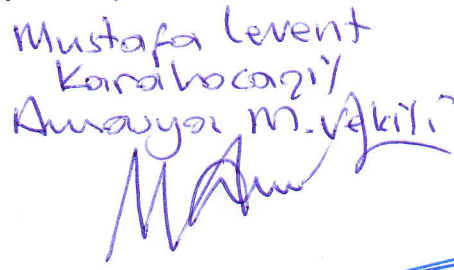 Mustafa Levent
Karahocagil
Amasya M.Vekili